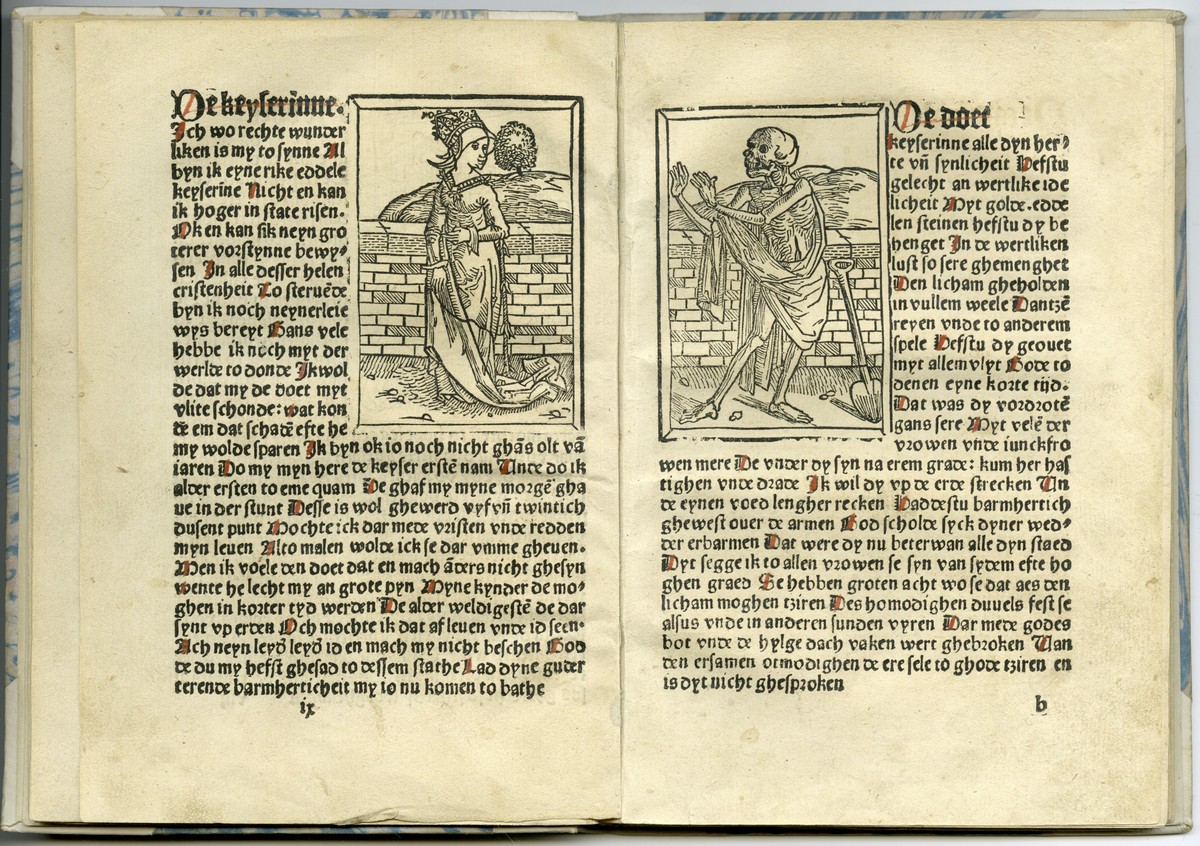 De keyserinne.
Ich wo rechte wunder
liken is my to synne Al
byn ik eyne rike eddele
keyserīne Nicht en kan
ik hoger in state risen.
Ok en kan sik neyn gro
terer vorstynne bewy⸗
sen In alle desser helen
cristenheit To steruēde
byn ik noch neynerleie
wys bereyt Gans vele
hebbe ik noch myt der
werlde to donde Ik wol
de dat my de doet myt
vlite schonde: wat kon
de em dat schadē efte he
my wolde sparen Ik byn ok io noch nicht ghās olt vā
iaren Do my myn here de keyser erstē nam Unde do ik
alder ersten to eme quam De ghaf my myne morgē gha
ue in der stunt Desse is wol ghewerd vyfvn̄ twintich
dusent punt Mochte ick dar mede vristen vnde redden
myn leuen Alto malen wolde ick se dar vmme gheuen.
Men ik voele den doet dat en mach āders nicht ghesyn
wente he lecht my an grote pyn Myne kynder de mo⸗
ghen in korter tyd werden De alder weldigestē de dar
synt vp erden Och mochte ik dat af leuen vnde id seen.
Ach neyn leyd leyd id en mach my nicht beschen God
de du my hefst ghesad to dessem stathe Lad dyne guder
terende barmherticheit my io nu komen to bathe
ix
De doet
keyserinne alle dyn her⸗
te vn̄ synlicheit Hefstu
gelecht an wertlike ide
licheit Myt golde. edde
len steinen hefstu dy be
henget In de wertliken
lust so sere ghemenghet
Den licham gheholden
in vullem weele Dantzē
reyen vnde to anderem
spele Hefstu dy geouet
myt allem vlyt Gode to
denen eyne korte tijd.
Dat was dy vordrotē
gans sere Myt velē der
vrowen vnde iunckfro
wen mere De vnder dy syn na erem grade: kum her has
tighen vnde drade Ik wil dy vp de erde strecken Un
de eynen voed lengher recken Haddestu barmhertich
ghewest over de armen God scholde syck dyner wed⸗
der erbarmen Dat were dy nu beter wan alle dyn staed
Dyt segge ik to allen vrowen se syn van sydem efte ho
ghen graed Se hebben groten acht wo se dat aes den
licham moghen tziren Des homodighen duuels fest se
alsus vnde in anderen sunden vyren Dar mede godes
bot vnde de hylge dach vaken wert ghebroken Wan
den ersamen otmodighen de ere sele to ghode tziren en
is dyt nicht ghesproken
b